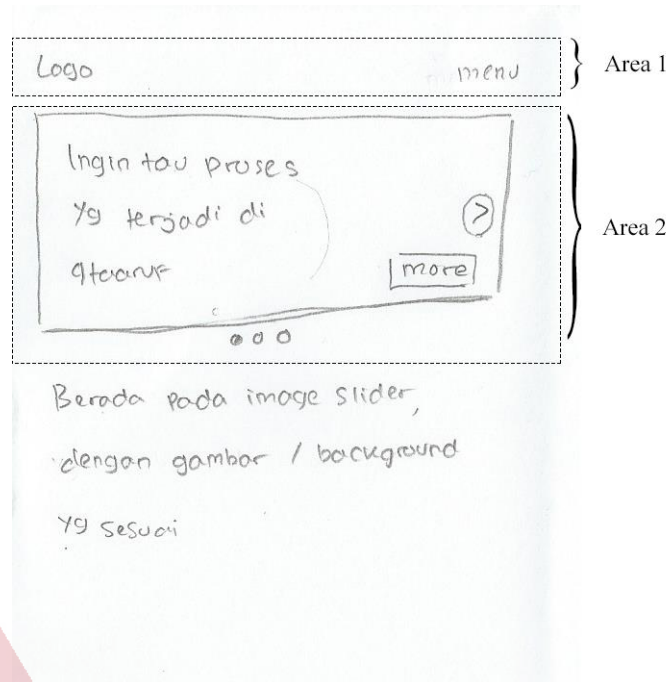 Logo
menu
Area 1
Ingin tau proses
yg terjadi di
qtaaruf
>
more
Area 2
Berada pada image slider,
dengan gambar / background
yg sesuai